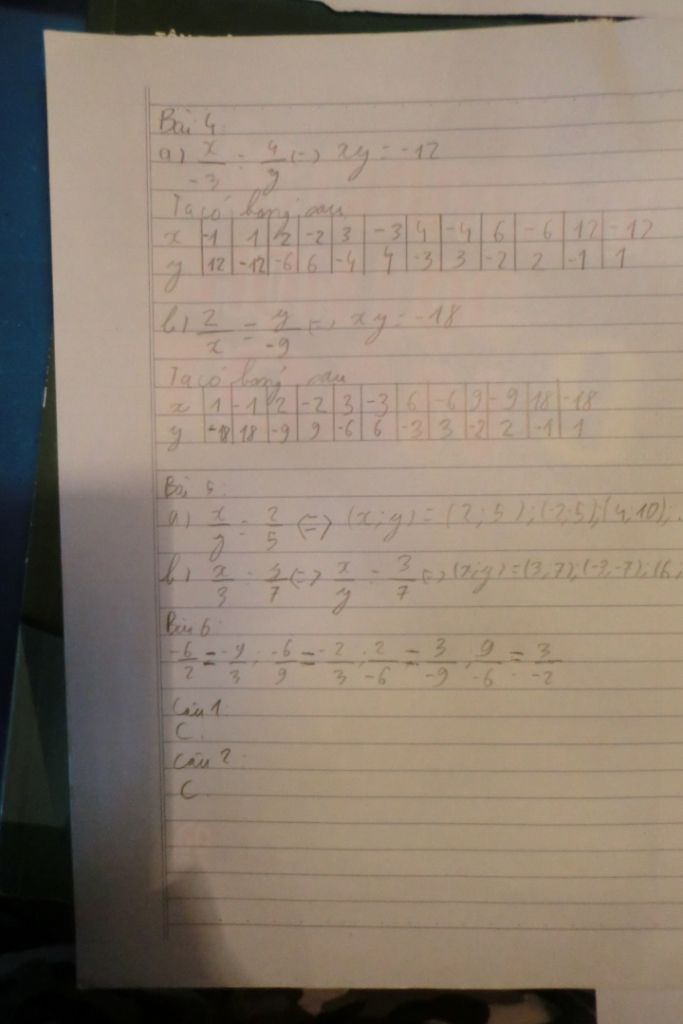 Bài 4:
a) x/-3 = 4/y (=) xy = -12
Ta có bảng sau
x | -1 | 1 | 2 | -2 | 3 | -3 | 4 | -4 | 6 | -6 | 12 | -12
y | 12 | -12 | -6 | 6 | -4 | 4 | -3 | 3 | -2 | 2 | -1 | 1
b) 2/x = y/-9 (=) xy = -18
Ta có bảng sau
x | 1 | -1 | 2 | -2 | 3 | -3 | 6 | -6 | 9 | -9 | 18 | -18
y | -18 | 18 | -9 | 9 | -6 | 6 | -3 | 3 | -2 | 2 | -1 | 1
Bài 5:
a) x/y = 2/5 (=) (x; y) = (2; 5); (-2; 5); (4; 10); .
b) x/3 = y/7 (=) x/y = 3/7 (=) (x; y) = (3, 7); (-3, -7); (6;
Bài 6:
-6/2 = -9/3; -6/9 = -2/3; 2/-6 = 3/-9; 9/-6 = 3/-2
Câu 1:
C.
Câu 2:
C.